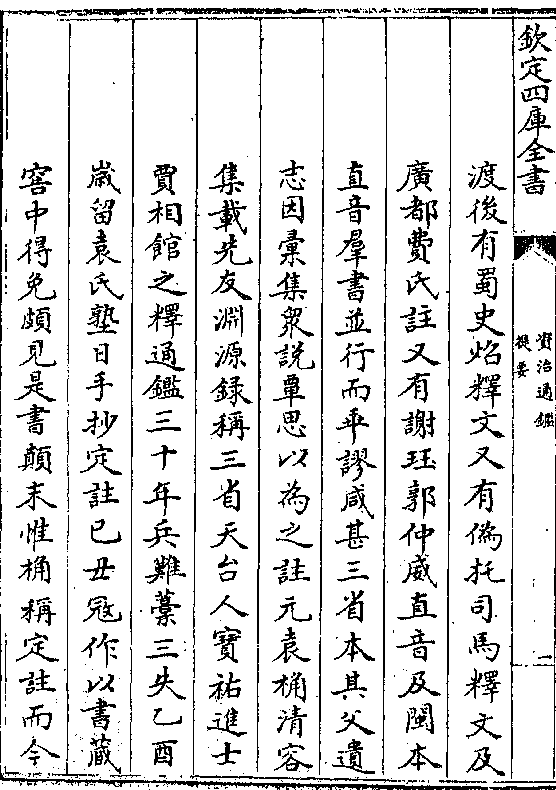 欽定四庫全書
資治通鑑
提要
一
渡後有蜀史炤釋文又有僞托司馬釋文及
廣都費氏註又有謝珏郭仲威直音及閩本
直音羣書並行而乖謬咸甚三省本其父遺
志因彙集衆説覃思以為之註元袁桷清容
集載先友淵源録稱三省天台人寳祐進士
賈相館之釋通鑑三十年兵難藁三失乙酉
嵗留袁氏塾日手抄定註已丑冦作以書藏
窖中得免頗見是書顛末惟桷稱定註而今